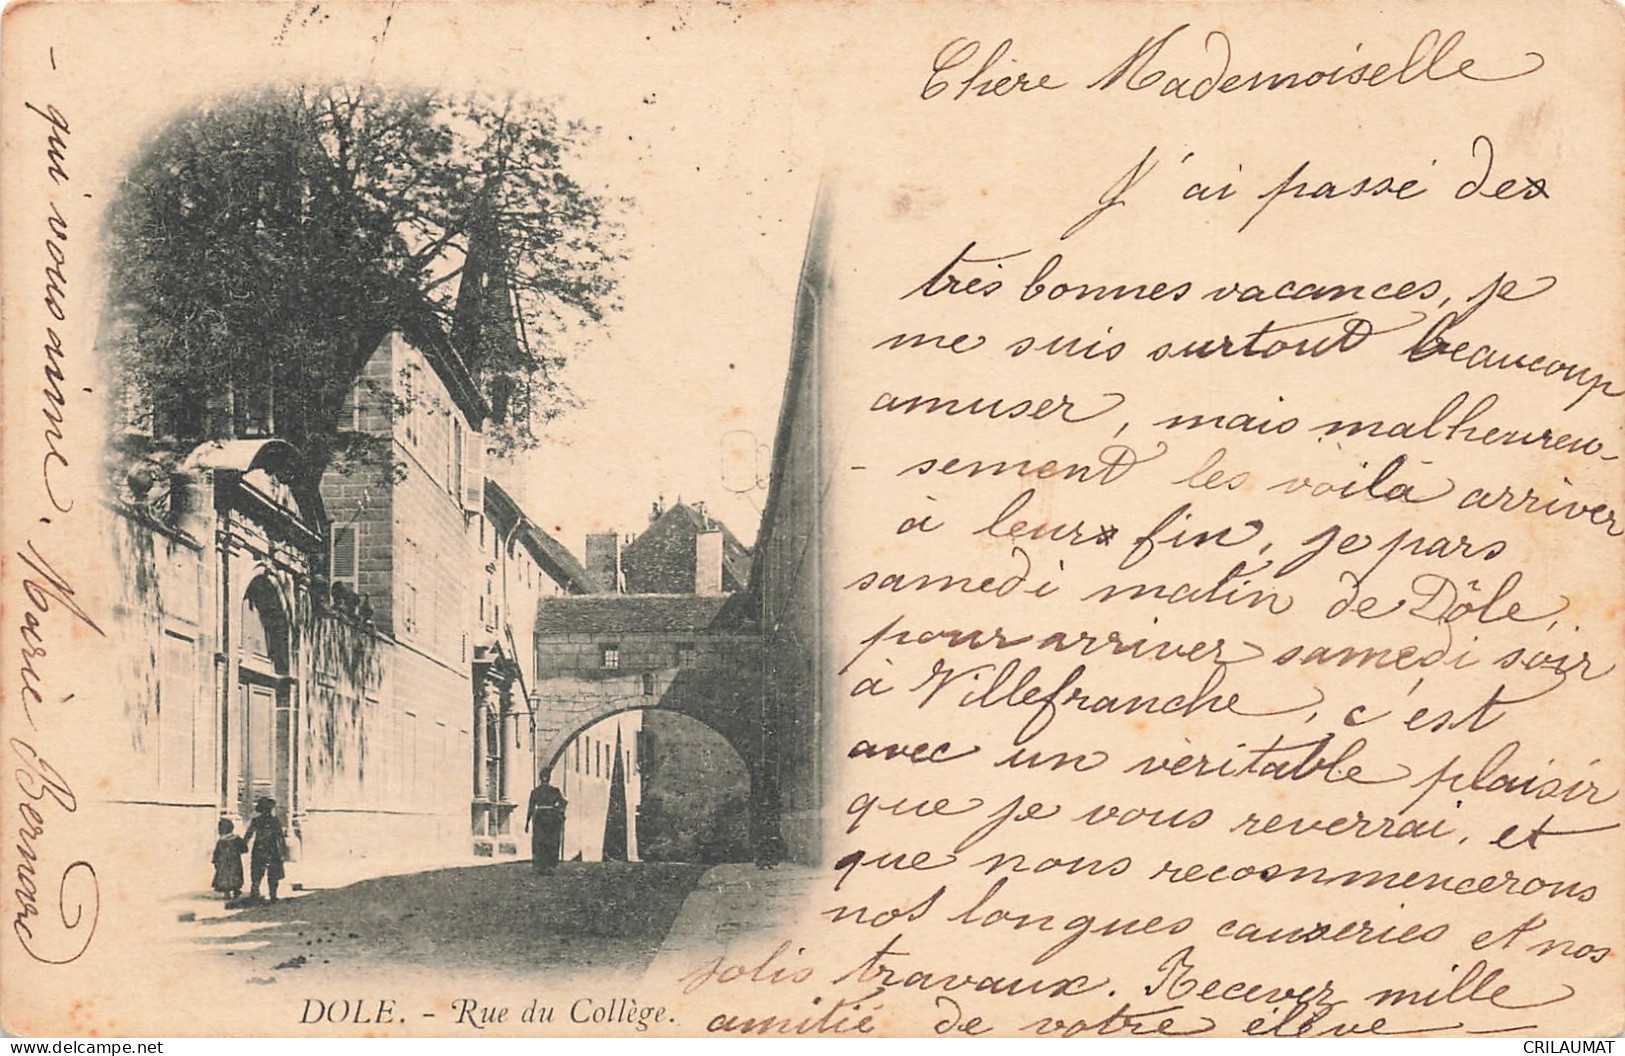 Chère Mademoiselle
J'ai passé des
très bonnes vacances, je
me suis surtout beaucoup
amuser, mais malheureu-
- sement les voilà arriver
à leurs fin, je pars
samedi matin de Dôle,
pour arriver samedi soir
à Villefranche, c'est
avec un véritable plaisir
que je vous reverrai, et
que nous recommencerons
nos longues causeries et nos
jolis travaux. Recevez mille
amitié de votre élève —
- qui vous aime.
Marie Bernard
DOLE. - Rue du Collège.
CRILAUMAT